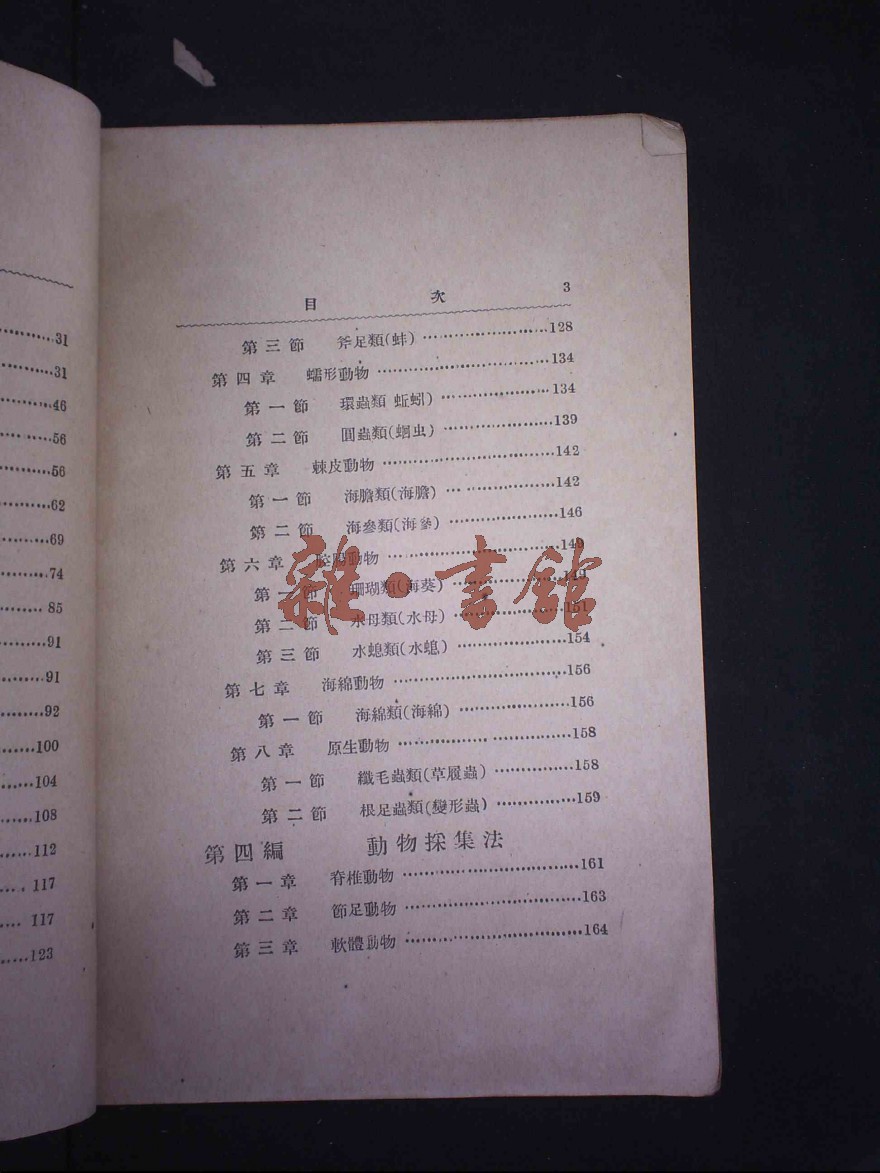 31
31
46
56
56
62
69
74
85
91
91
92
100
104
108
112
117
117
123
目 次 3
第三節 斧足類(蚌)…………………128
第四章 蠕形動物…………………134
第一節 環蟲類 蚯蚓)…………………134
第二節 圓蟲類(蛔虫)…………………139
第五章 棘皮動物…………………142
第一節 海膽類(海膽)…………………142
第二節 海參類(海參)…………………146
第六章 腔腸動物…………………149
第一節 珊瑚類(海葵)…………………149
第二節 水母類(水母)…………………151
第三節 水螅類(水螅)…………………154
第七章 海綿動物…………………156
第一節 海綿類(海綿)…………………156
第八章 原生動物…………………158
第一節 纖毛蟲類(草履蟲)…………………158
第二節 根足蟲類(變形蟲)…………………159
第四編 動物採集法
第一章 脊椎動物…………………161
第二章 節足動物…………………163
第三章 軟體動物…………………164
雜·書館